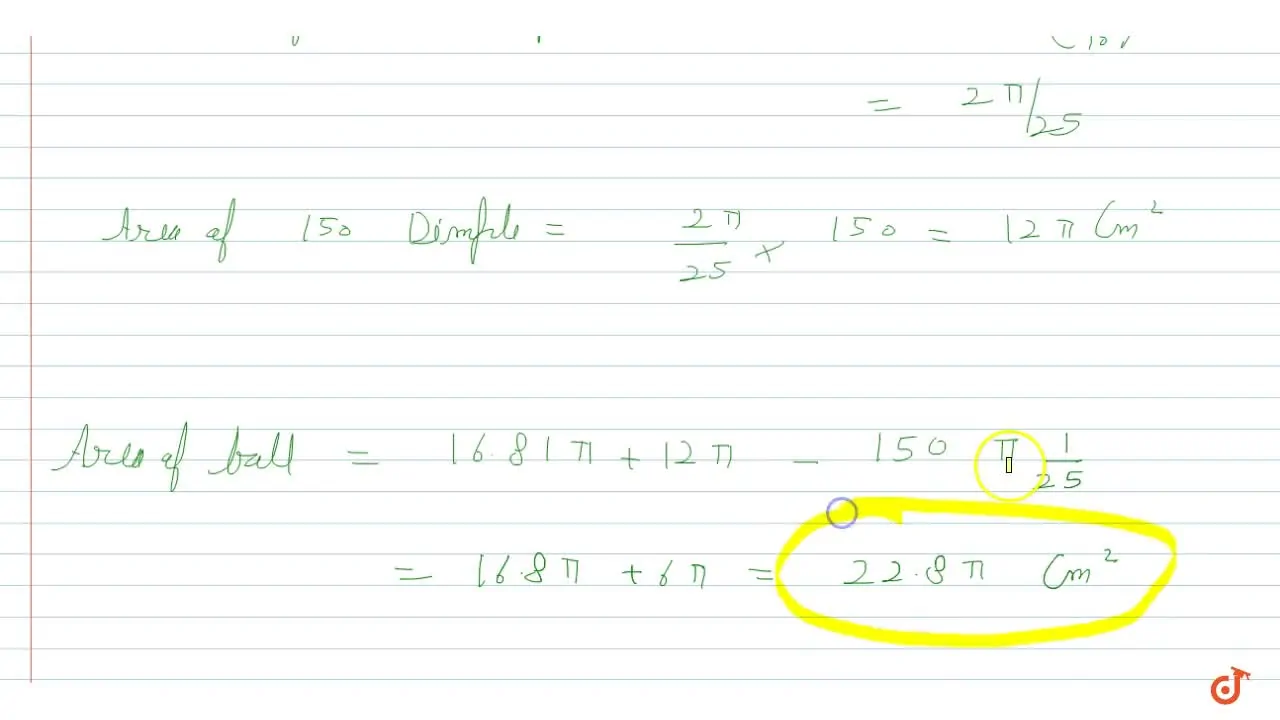 = 2π/25
Area of 150 Dimple = 2π/25 × 150 = 12π Cm²
Area of ball = 16.81π + 12π - 150 π 1/25
= 16.8π + 6π = 22.8π Cm²